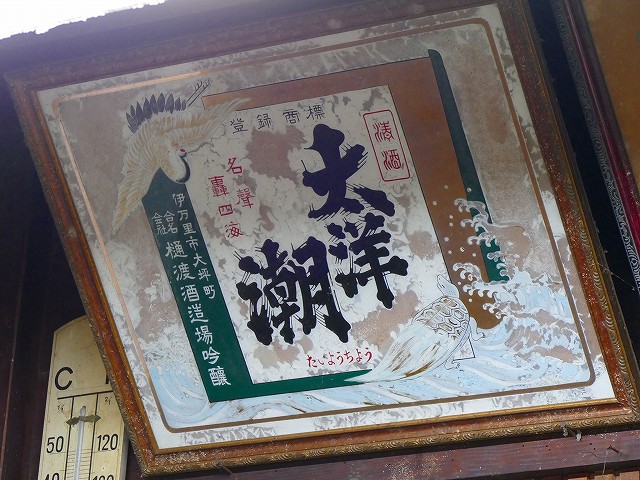 登録商標
清酒
大洋
潮
たいようちよう
名聲
轟四海
伊万里市大坪町
合名会社
樋渡酒造場吟釀
C
50
120
40
100